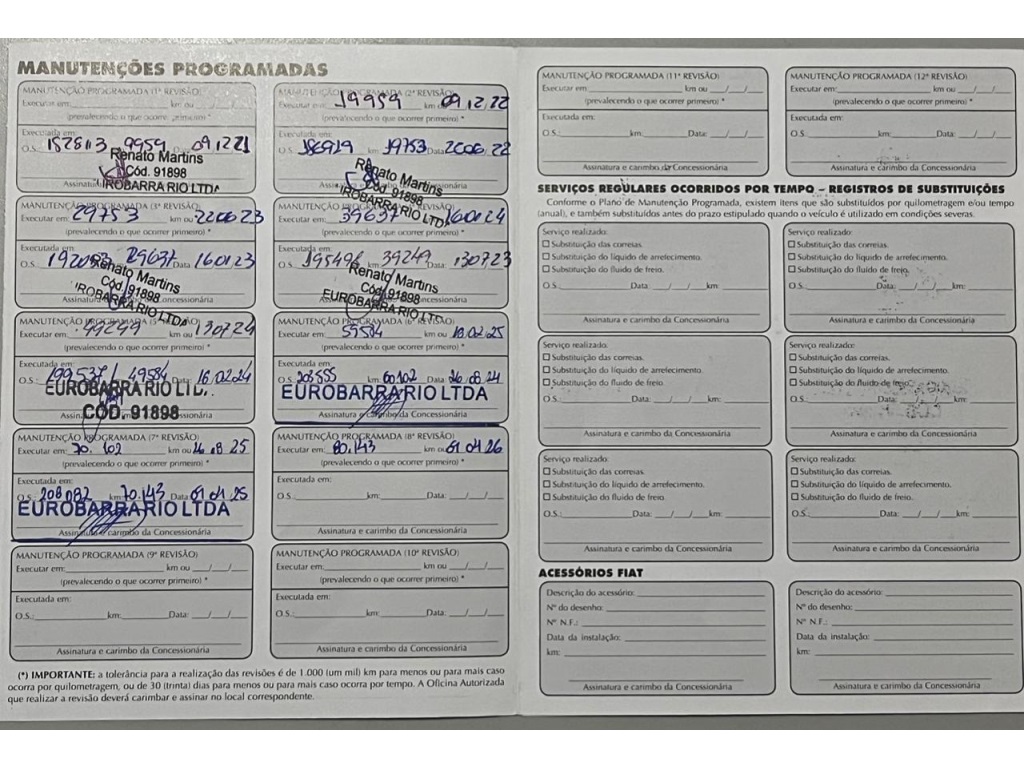 MANUTENÇÕES PROGRAMADAS
MANUTENÇÃO PROGRAMADA (1ª REVISÃO)
Executar em: km ou
(prevalecendo o que ocorrer primeiro) *
Executada em:
O.S.: 182813 9959 Data 091221
Renato Martins
Cód. 91898
IROBARRA RIO LTDA
MANUTENÇÃO PROGRAMADA (2ª REVISÃO)
Executar em: 19959 km ou 09.12.22
(prevalecendo o que ocorrer primeiro) *
Executada em:
O.S. 186929 19753 Data 200622
Renato Martins
Cód. 91898
IROBARRA RIO LTDA
MANUTENÇÃO PROGRAMADA (3ª REVISÃO)
Executar em: 29753 km ou 220623
(prevalecendo o que ocorrer primeiro) *
Executada em:
O.S. 29637 Data 160123
Renato Martins
Cód. 91898
IROBARRA RIO LTDA
Executar em: 39637 km ou 160124
(prevalecendo o que ocorrer primeiro) *
Executada em:
O.S. 39249 Data 130723
Renato Martins
Cód. 91898
EUROBARRA RIO LTDA
Executar em: 49249 km ou 130724
(prevalecendo o que ocorrer primeiro) *
Executada em:
O.S. 199537 49584 Data: 16.02.24
EUROBARRA RIO LTDA.
CÓD. 91898
MANUTENÇÃO PROGRAMADA (6ª REVISÃO)
Executar em: 59584 km ou 18.02.25
(prevalecendo o que ocorrer primeiro) *
Executada em:
O.S. km 60102 Data 26.08.24
EUROBARRA RIO LTDA
Assinatura e carimbo da Concessionária
MANUTENÇÃO PROGRAMADA (7ª REVISÃO)
Executar em: 70.102 km ou 26.08.25
(prevalecendo o que ocorrer primeiro) *
Executada em:
O.S. 208082 km 70.143 Data 01 04 25
EUROBARRA RIO LTDA
Assinatura e carimbo da Concessionária
MANUTENÇÃO PROGRAMADA (8ª REVISÃO)
Executar em: 80.143 km ou 01 04 26
(prevalecendo o que ocorrer primeiro) *
Executada em:
O.S.: km: Data: __/__/__
Assinatura e carimbo da Concessionária
MANUTENÇÃO PROGRAMADA (9ª REVISÃO)
Executar em: km ou __/__/__
(prevalecendo o que ocorrer primeiro) *
Executada em:
O.S.: km: Data: __/__/__
Assinatura e carimbo da Concessionária
MANUTENÇÃO PROGRAMADA (10ª REVISÃO)
Executar em: km ou __/__/__
(prevalecendo o que ocorrer primeiro) *
Executada em:
O.S.: km: Data: __/__/__
Assinatura e carimbo da Concessionária
(*) IMPORTANTE: a tolerância para a realização das revisões é de 1.000 (um mil) km para menos ou para mais caso
ocorra por quilometragem, ou de 30 (trinta) dias para menos ou para mais caso ocorra por tempo. A Oficina Autorizada
que realizar a revisão deverá carimbar e assinar no local correspondente.
MANUTENÇÃO PROGRAMADA (11ª REVISÃO)
Executar em: km ou __/__/__
(prevalecendo o que ocorrer primeiro) *
Executada em:
O.S.: km: Data: __/__/__
Assinatura e carimbo da Concessionária
MANUTENÇÃO PROGRAMADA (12ª REVISÃO)
Executar em: km ou __/__/__
(prevalecendo o que ocorrer primeiro) *
Executada em:
O.S.: km: Data: __/__/__
Assinatura e carimbo da Concessionária
SERVIÇOS REGULARES OCORRIDOS POR TEMPO – REGISTROS DE SUBSTITUIÇÕES
Conforme o Plano de Manutenção Programada, existem itens que são substituídos por quilometragem e/ou tempo
(anual), e também substituídos antes do prazo estipulado quando o veículo é utilizado em condições severas.
Serviço realizado:
Substituição das correias.
Substituição do líquido de arrefecimento.
Substituição do fluido de freio.
O.S.: Data: __/__/__ km:
Assinatura e carimbo da Concessionária
Serviço realizado:
Substituição das correias.
Substituição do líquido de arrefecimento.
Substituição do fluido de freio.
O.S.: Data: __/__/__ km:
Assinatura e carimbo da Concessionária
Serviço realizado:
Substituição das correias.
Substituição do líquido de arrefecimento.
Substituição do fluido de freio.
O.S.: Data: __/__/__ km:
Assinatura e carimbo da Concessionária
Serviço realizado:
Substituição das correias.
Substituição do líquido de arrefecimento.
Substituição do fluido de freio.
O.S.: Data: __/__/__ km:
Assinatura e carimbo da Concessionária
Serviço realizado:
Substituição das correias.
Substituição do líquido de arrefecimento.
Substituição do fluido de freio.
O.S.: Data: __/__/__ km:
Assinatura e carimbo da Concessionária
Serviço realizado:
Substituição das correias.
Substituição do líquido de arrefecimento.
Substituição do fluido de freio.
O.S.: Data: __/__/__ km:
Assinatura e carimbo da Concessionária
ACESSÓRIOS FIAT
Descrição do acessório:
Nº do desenho:
Nº N.F.:
Data da instalação:
km:
Assinatura e carimbo da Concessionária
Descrição do acessório:
Nº do desenho:
Nº N.F.:
Data da instalação:
km:
Assinatura e carimbo da Concessionária